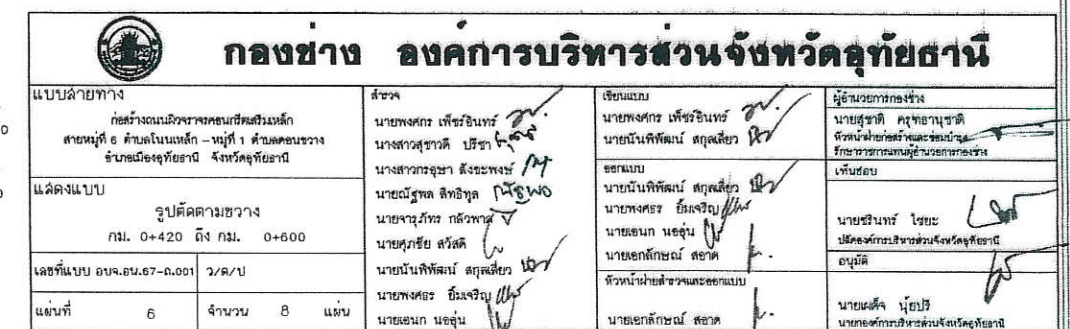 กองช่าง องค์การบริหารส่วนจังหวัดอุทัยธานี
แบบสายทาง
ก่อสร้างถนนผิวจราจรคอนกรีตเสริมเหล็ก
สายหมู่ที่ 6 ตำบลโนนเหล็ก – หมู่ที่ 1 ตำบลดอนขวาง
อำเภอเมืองอุทัยธานี จังหวัดอุทัยธานี
แสดงแบบ
รูปตัดตามขวาง
กม. 0+420 ถึง กม. 0+600
เลขที่แบบ อบจ.อน.67-ถ.001 ว/ด/ป
แผ่นที่ 6 จำนวน 8 แผ่น
สำรวจ
นายพงศกร เพ็ชรอินทร์
นางสาวสุชาวดี ปรีชา
นางสาวกรอุษา สังขะพงษ์
นายณัฐพล สิทธิทูล ณัฐพล
นายจารุภัทร กลัวพาล
นายศุภชัย สวัสดี
นายนันพิพัฒน์ สกุลเสี่ยว
นายพงศธร ยิ้มเจริญ
นายเอนก นออุ่น
เขียนแบบ
นายพงศกร เพ็ชรอินทร์
นายนันพิพัฒน์ สกุลเสี่ยว
ออกแบบ
นายนันพิพัฒน์ สกุลเสี่ยว
นายพงศธร ยิ้มเจริญ
นายเอนก นออุ่น
นายเอกลักษณ์ สอาด
หัวหน้าฝ่ายสำรวจและออกแบบ
นายเอกลักษณ์ สอาด
ผู้อำนวยการกองช่าง
นายสุชาติ ครุฑธานุชาติ
หัวหน้าฝ่ายก่อสร้างและซ่อมบำรุง
รักษาราชการแทนผู้อำนวยการกองช่าง
เห็นชอบ
นายชรินทร์ ไชยะ
ปลัดองค์การบริหารส่วนจังหวัดอุทัยธานี
อนุมัติ
นายเผด็จ นุ้ยปรี
นายกองค์การบริหารส่วนจังหวัดอุทัยธานี